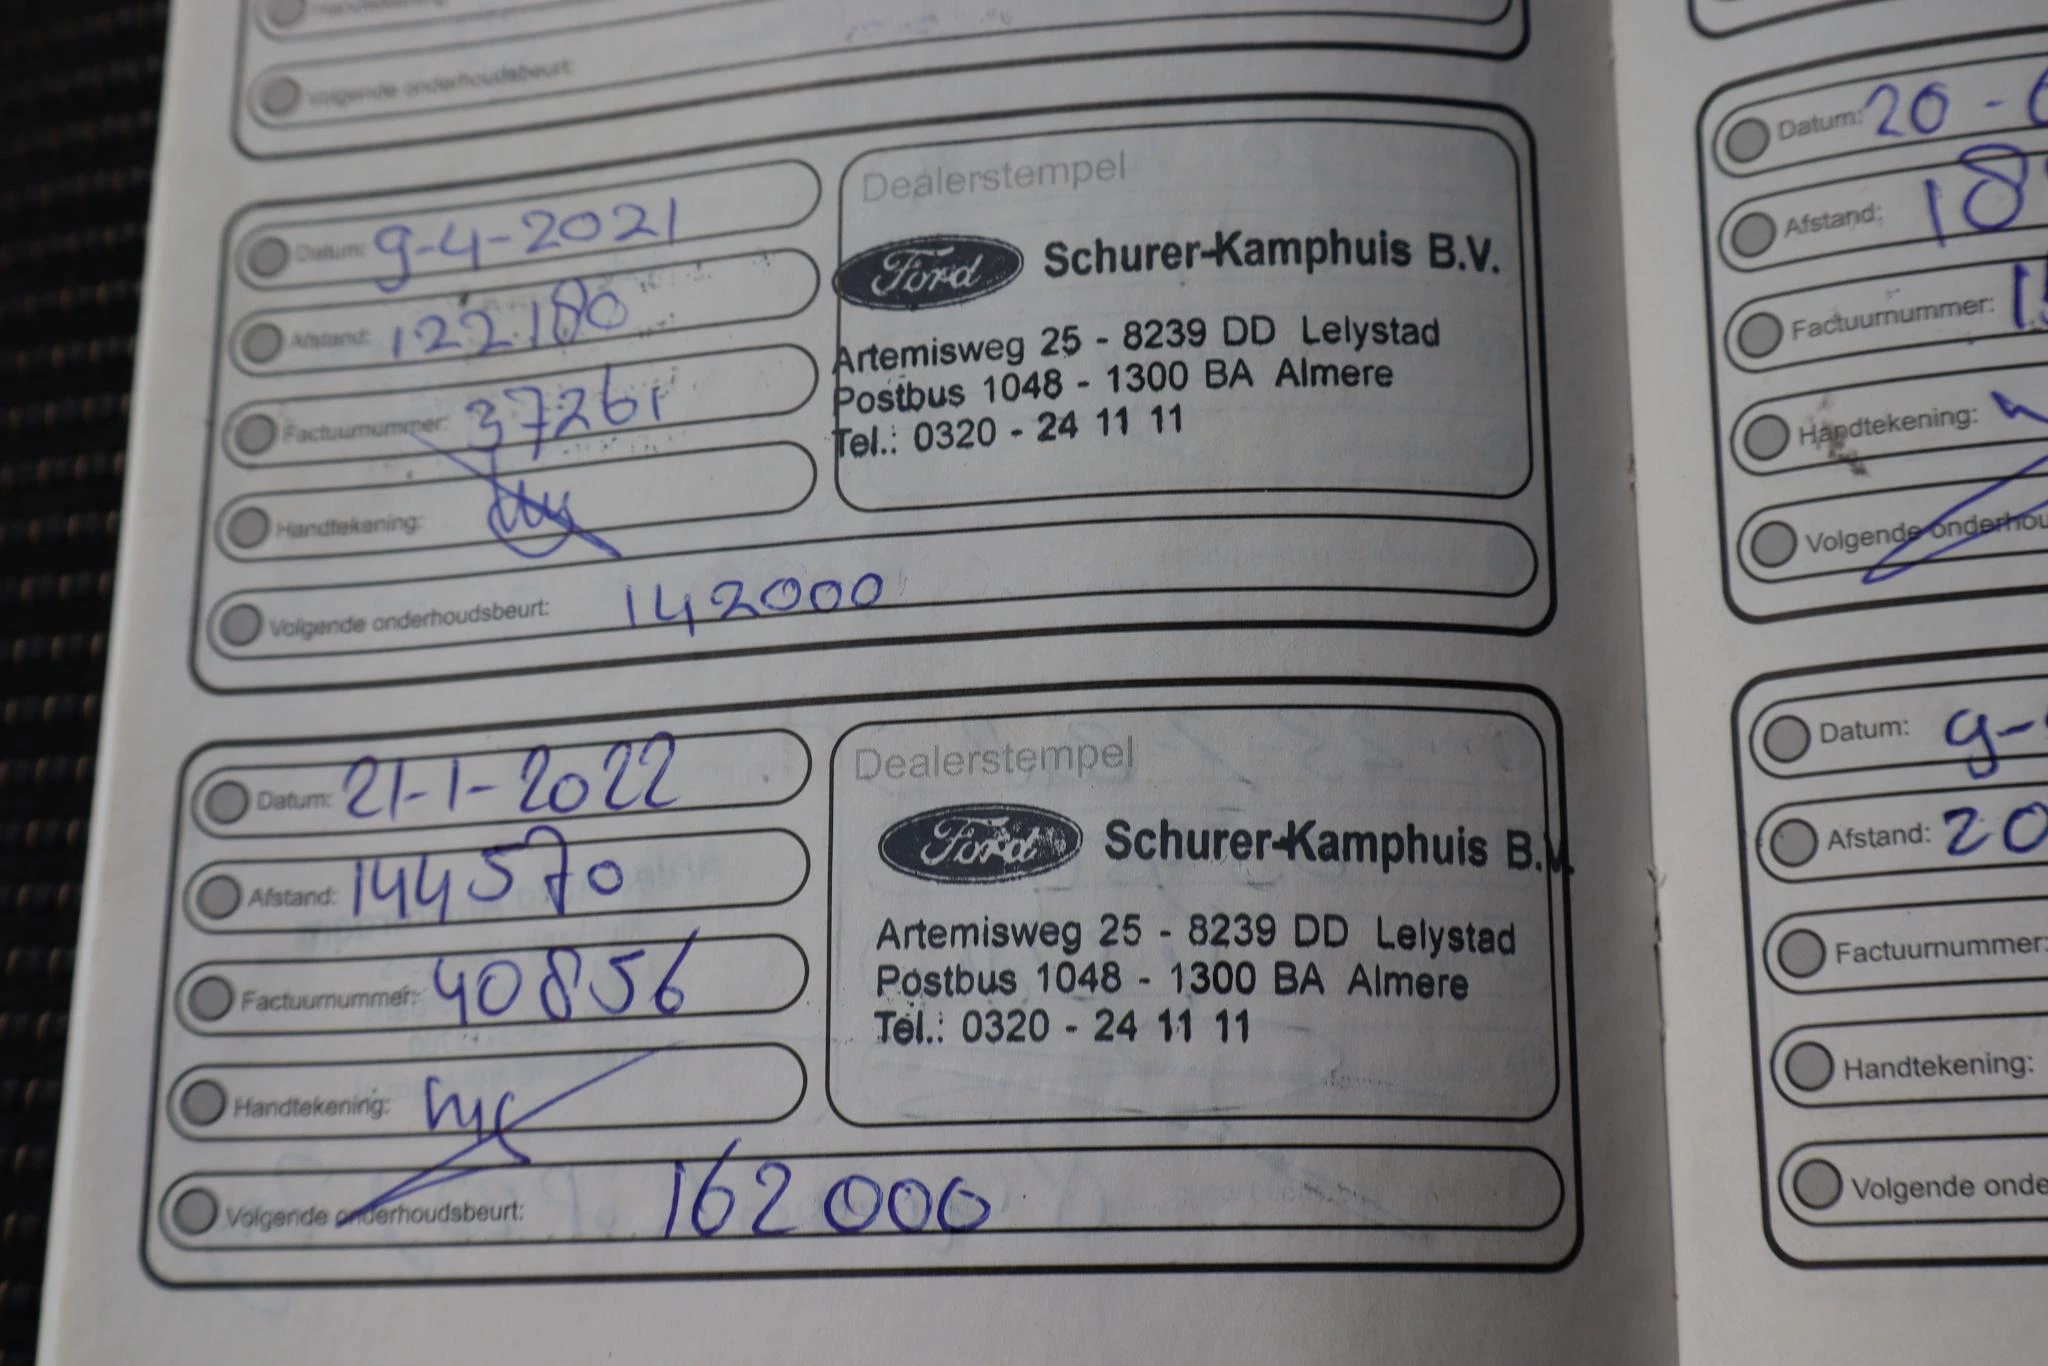 Volgende onderhoudsbeurt:
Datum: 9-4-2021
Afstand: 122180
Factuurnummer: 37261
Handtekening:
Volgende onderhoudsbeurt: 142000
Dealerstempel
Ford Schurer-Kamphuis B.V.
Artemisweg 25 - 8239 DD Lelystad
Postbus 1048 - 1300 BA Almere
Tel.: 0320 - 24 11 11
Datum: 21-1-2022
Afstand: 144570
Factuurnummer: 40856
Handtekening:
Volgende onderhoudsbeurt: 162000
Dealerstempel
Ford Schurer-Kamphuis B.V.
Artemisweg 25 - 8239 DD Lelystad
Postbus 1048 - 1300 BA Almere
Tel.: 0320 - 24 11 11
Datum: 20 -
Afstand: 18
Factuurnummer: 15
Handtekening:
Volgende onderhou
Datum: 9-
Afstand: 20
Factuurnummer:
Handtekening:
Volgende onde